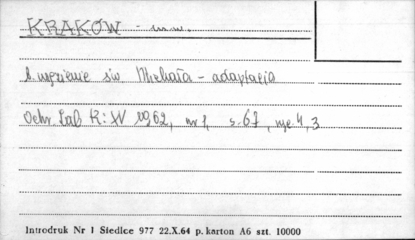 KRAKÓW - m.w.
b. więzienie św. Michała - adaptacja
Ochr. Zab R: XV 1962, nr 1, s. 67, ryc 4, 3
Introdruk Nr 1 Siedlce 977 22.X.64 p. karton A6 szt. 10000